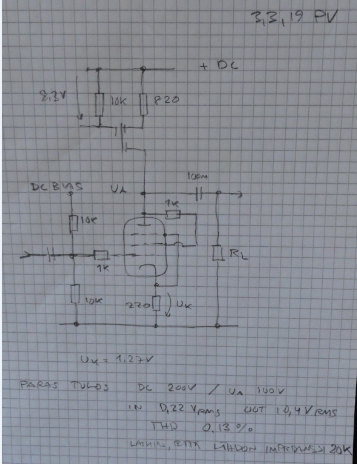 3,3,19 PV
+ DC
8,3V
10K
820
100n
DC BIAS
UA
1K
10K
1K
RL
10K
220
UK
UK = 1,27V
PARAS TULOS DC 200V / UA 100V
IN 0,22 VRMS OUT 10,4 VRMS
THD 0,13 %
IMPEDANSSI 20K